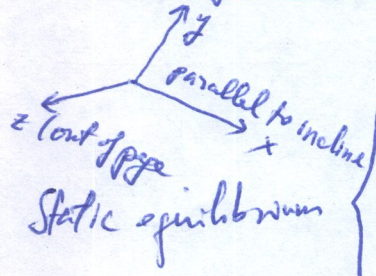 y
parallel to incline
x
z (out of page
Static equilibrium